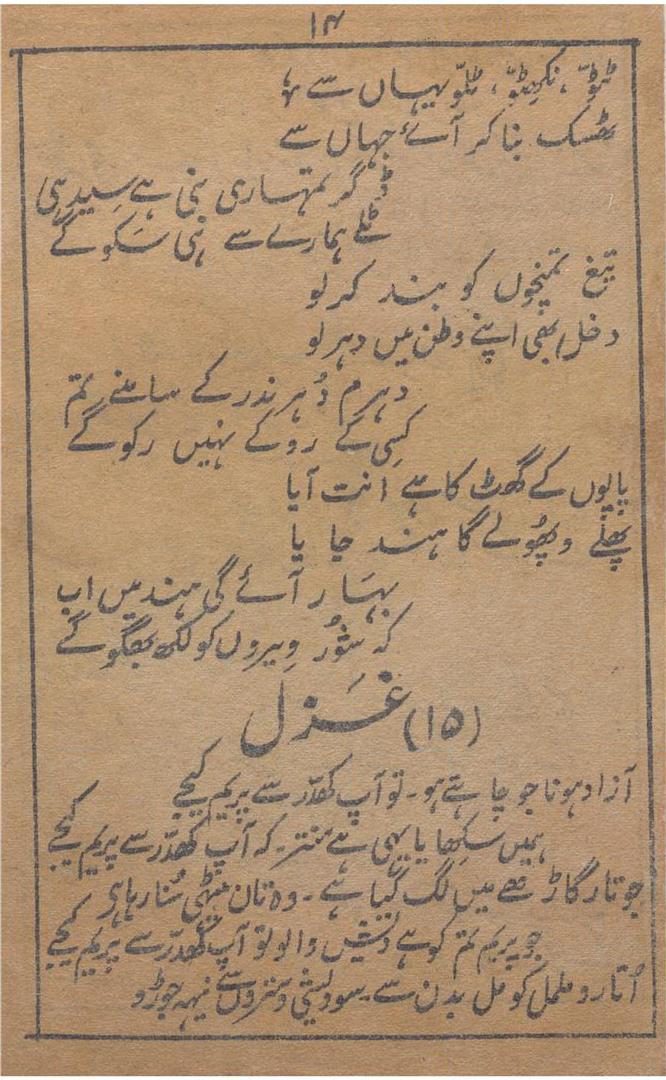 ۱۴
ٹوڈّ، نکھٹوّ، ٹلوّ یہاں سے
ٹھسک بنا کر آئے جہاں سے
ڈگر تمہاری بنی ہے سیدھی
ٹلے ہمارے سے نہی سکو گے
تیغ تمنچوں کو بند کر لو
دخل ابھی اپنے وطن میں دہر لو
دہرم دُہر ندر کے سامنے تم
کسِی کے روکے نہیں رکو گے
پاپوں کے گھٹ کا ہے انت آیا
پھلے و پھُولے گا ہند جایا
بہَار آئے گی ہند میں اب
کہ شوُر وِیروں کو لکھ بھگو گے
(۱۵) غَزل
آزاد ہونا جو چاہتے ہو۔ تو آپ کھدّر سے پریم کیجے
ہمیں سکھایا یہی ہے منتر۔ کہ آپ کھدّر سے پریم کیجے
جو تار گاڑھے میں لگ گیا ہے۔ وہ تان میٹھی سُنا رہا ہی
جو پریَم تم کو ہے دیش والو تو آپ کھدّر سے پریم کیجے
اُتارو ململ کو مل بدن سے۔ سودیشی وستروں سے نیہہ جوڑو